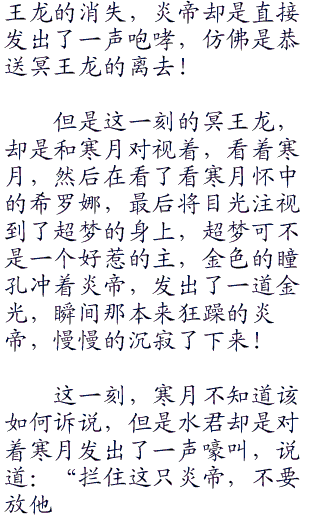 王龙的消失，炎帝却是直接
发出了一声咆哮，仿佛是恭
送冥王龙的离去！
但是这一刻的冥王龙，
却是和寒月对视着，看着寒
月，然后在看了看寒月怀中
的希罗娜，最后将目光注视
到了超梦的身上，超梦可不
是一个好惹的主，金色的瞳
孔冲着炎帝，发出了一道金
光，瞬间那本来狂躁的炎
帝，慢慢的沉寂了下来！
这一刻，寒月不知道该
如何诉说，但是水君却是对
着寒月发出了一声嚎叫，说
道：“拦住这只炎帝，不要
放他